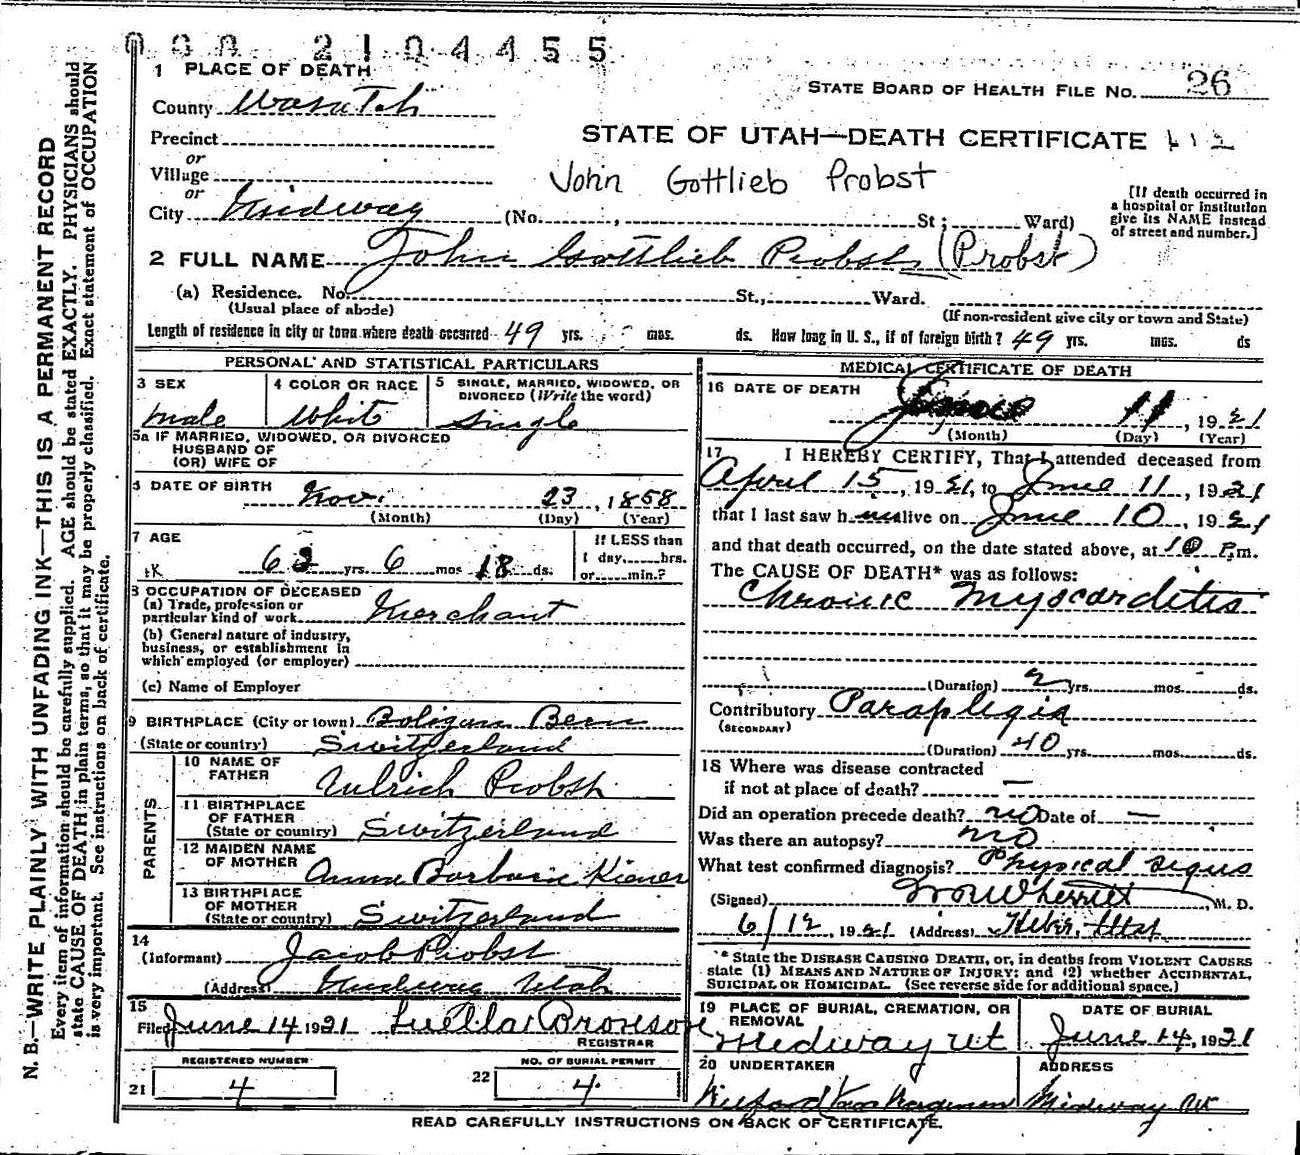 000 2104455
1 PLACE OF DEATH
STATE BOARD OF HEALTH FILE NO. 26
County Wasatch
Precinct
STATE OF UTAH—DEATH CERTIFICATE 112
or
Village
John Gottlieb Probst
or
City Midway (No. , St; Ward)
[If death occurred in
a hospital or institution
give its NAME instead
of street and number.]
2 FULL NAME John Gottlieb Probst (Probst)
(a) Residence. No. St., Ward.
(Usual place of abode)
(If non-resident give city or town and State)
Length of residence in city or town where death occurred 49 yrs. mos. ds. How long in U. S., if of foreign birth? 49 yrs. mos. ds
PERSONAL AND STATISTICAL PARTICULARS
3 SEX
male
4 COLOR OR RACE
White
5 SINGLE, MARRIED, WIDOWED, OR
DIVORCED (Write the word)
Single
5a IF MARRIED, WIDOWED, OR DIVORCED
HUSBAND OF
(OR) WIFE OF
6 DATE OF BIRTH Nov. 23, 1858
(Month) (Day) (Year)
7 AGE
62 yrs. 6 mos 18 ds.
If LESS than
1 day, hrs.
or min.?
8 OCCUPATION OF DECEASED
(a) Trade, profession or
particular kind of work Merchant
(b) General nature of industry,
business, or establishment in
which employed (or employer)
(c) Name of Employer
9 BIRTHPLACE (City or town) Boligun Bern
(State or country) Switzerland
PARENTS
10 NAME OF
FATHER Ulrich Probst
11 BIRTHPLACE
OF FATHER
(State or country) Switzerland
12 MAIDEN NAME
OF MOTHER Anna Barbara Kiener
13 BIRTHPLACE
OF MOTHER
(State or country) Switzerland
14
(Informant) Jacob Probst
(Address) Midway Utah
15
Filed June 14 1921 Luella Bronson
REGISTRAR
REGISTERED NUMBER
21 4
NO. OF BURIAL PERMIT
22 4
MEDICAL CERTIFICATE OF DEATH
16 DATE OF DEATH June 11, 1921
(Month) (Day) (Year)
17 I HEREBY CERTIFY, That I attended deceased from
April 15, 1921, to June 11, 1921
that I last saw him alive on June 10, 1921
and that death occurred, on the date stated above, at 10 P.m.
The CAUSE OF DEATH* was as follows:
Chronic Myocarditis
(Duration) 2 yrs. mos. ds.
Contributory Paraplegia
(SECONDARY)
(Duration) 40 yrs. mos. ds.
18 Where was disease contracted
if not at place of death? —
Did an operation precede death? no Date of —
Was there an autopsy? no
What test confirmed diagnosis? Physical signs
(Signed) Wm Wherritt, M. D.
6/12, 1921 (Address) Heber, Utah
* State the DISEASE CAUSING DEATH, or, in deaths from VIOLENT CAUSES
state (1) MEANS AND NATURE OF INJURY: and (2) whether ACCIDENTAL,
SUICIDAL OR HOMICIDAL. (See reverse side for additional space.)
19 PLACE OF BURIAL, CREMATION, OR
REMOVAL
Midway Ut
DATE OF BURIAL
June 14, 1921
20 UNDERTAKER
Wilford Van Wagenen
ADDRESS
Midway Ut
READ CAREFULLY INSTRUCTIONS ON BACK OF CERTIFICATE.
N. B.—WRITE PLAINLY WITH UNFADING INK—THIS IS A PERMANENT RECORD
Every item of information should be carefully supplied. AGE should be stated EXACTLY. PHYSICIANS should
state CAUSE OF DEATH in plain terms, so that it may be properly classified. Exact statement of OCCUPATION
is very important. See instructions on back of certificate.